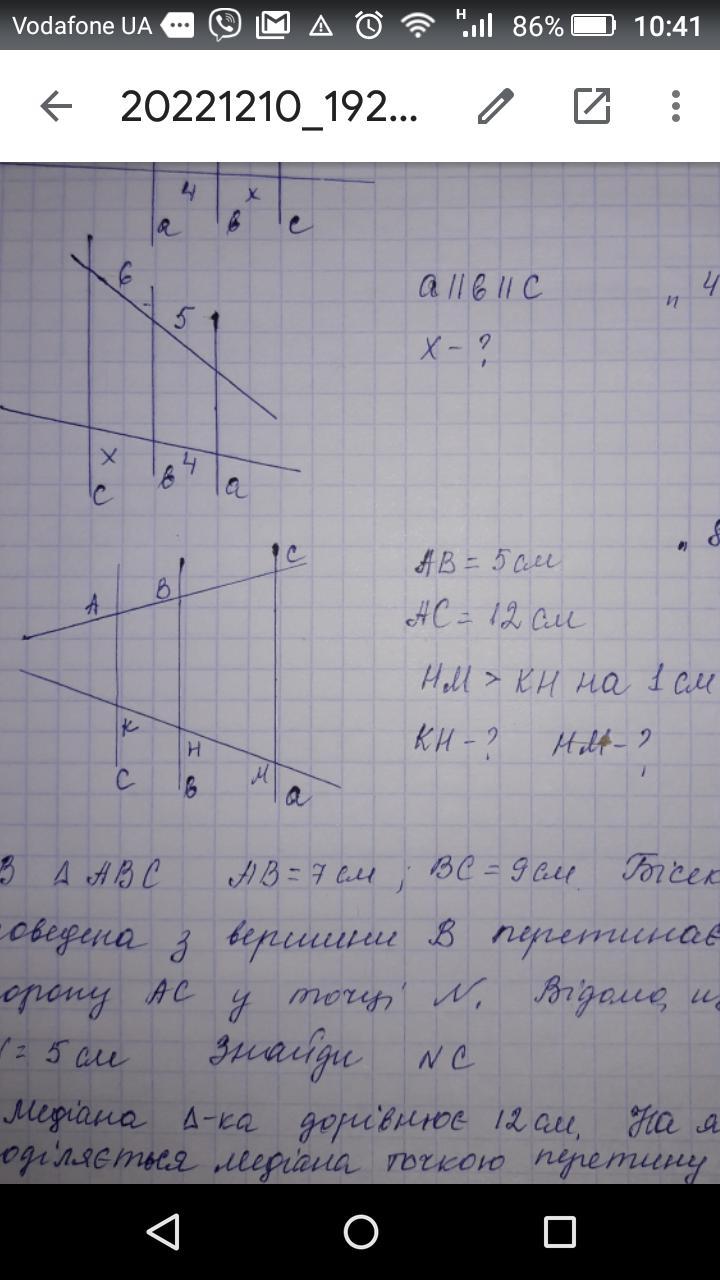 Vodafone UA 86% 10:41
20221210_192...
4 x
a в c
6
5
a || в || c
x - ?
" 4
x 4
c в a
" 8
A B C
K H M
c в a
AB = 5 см
AC = 12 см
HM > KH на 1 см
KH - ? HM - ?
В Δ ABC AB = 7 см ; BC = 9 см Бісек
оведена з вершини B перетинає
орону AC у точці N. Відомо,
= 5 см Знайди NC
Медіана Δ-ка дорівнює 12 см. На я
оділяється медіана точкою перетину